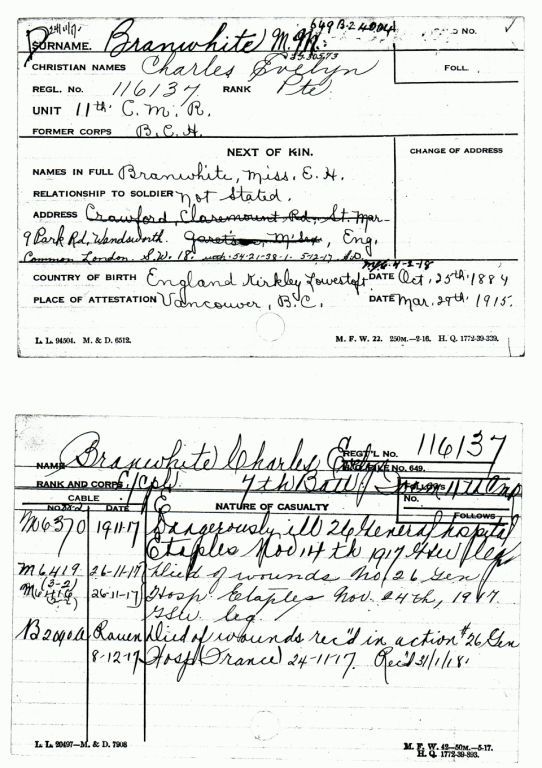 649-B-24004
SURNAME. Branwhite M.M. No. ✓
CHRISTIAN NAMES Charles Evelyn
FOLL.
REGL. No. 116137 RANK Pte
UNIT 11th C.M.R.
FORMER CORPS B.C.H.
NEXT OF KIN. CHANGE OF ADDRESS
NAMES IN FULL Branwhite, Miss. E. H.
RELATIONSHIP TO SOLDIER Not Stated.
ADDRESS Crawford, Claremount Rd, St. Mar-
9 Park Rd, Wandsworth. Eng.
Common London. S.W. 18.
COUNTRY OF BIRTH England Kirkley Lowestoft DATE Oct. 25th 1884
PLACE OF ATTESTATION Vancouver, B.C. DATE Mar. 29th 1915.
L. L. 94504. M. & D. 6512. M. F. W. 22. 250M.—2-16. H. Q. 1772-39-339.
NAME Branwhite Charles Evelyn REGT'L No. 116137
No. 649.
RANK AND CORPS L/Cpl 7th Batt. 11th Cmr
FOLLOWS
No.
FOLLOWS
CABLE
No. DATE NATURE OF CASUALTY
M6370 19-11-17 Dangerously ill 26 General hospital
Etaples Nov 14th 1917 GSW leg
M6419 26-11-17 Died of wounds No. 26 Gen
(3-2)
M6416 26-11-17 Hosp Etaples Nov. 24th, 1917
GSW leg.
B2090A Rouen Died of wounds rec'd in action #26 Gen
8-12-17 Hosp France 24-11-17. Rec'd 31/1/18.
L. L. 20497—M. & D. 7908 M. F. W. 42—50M.—5-17.
H. Q. 1772-39-893.